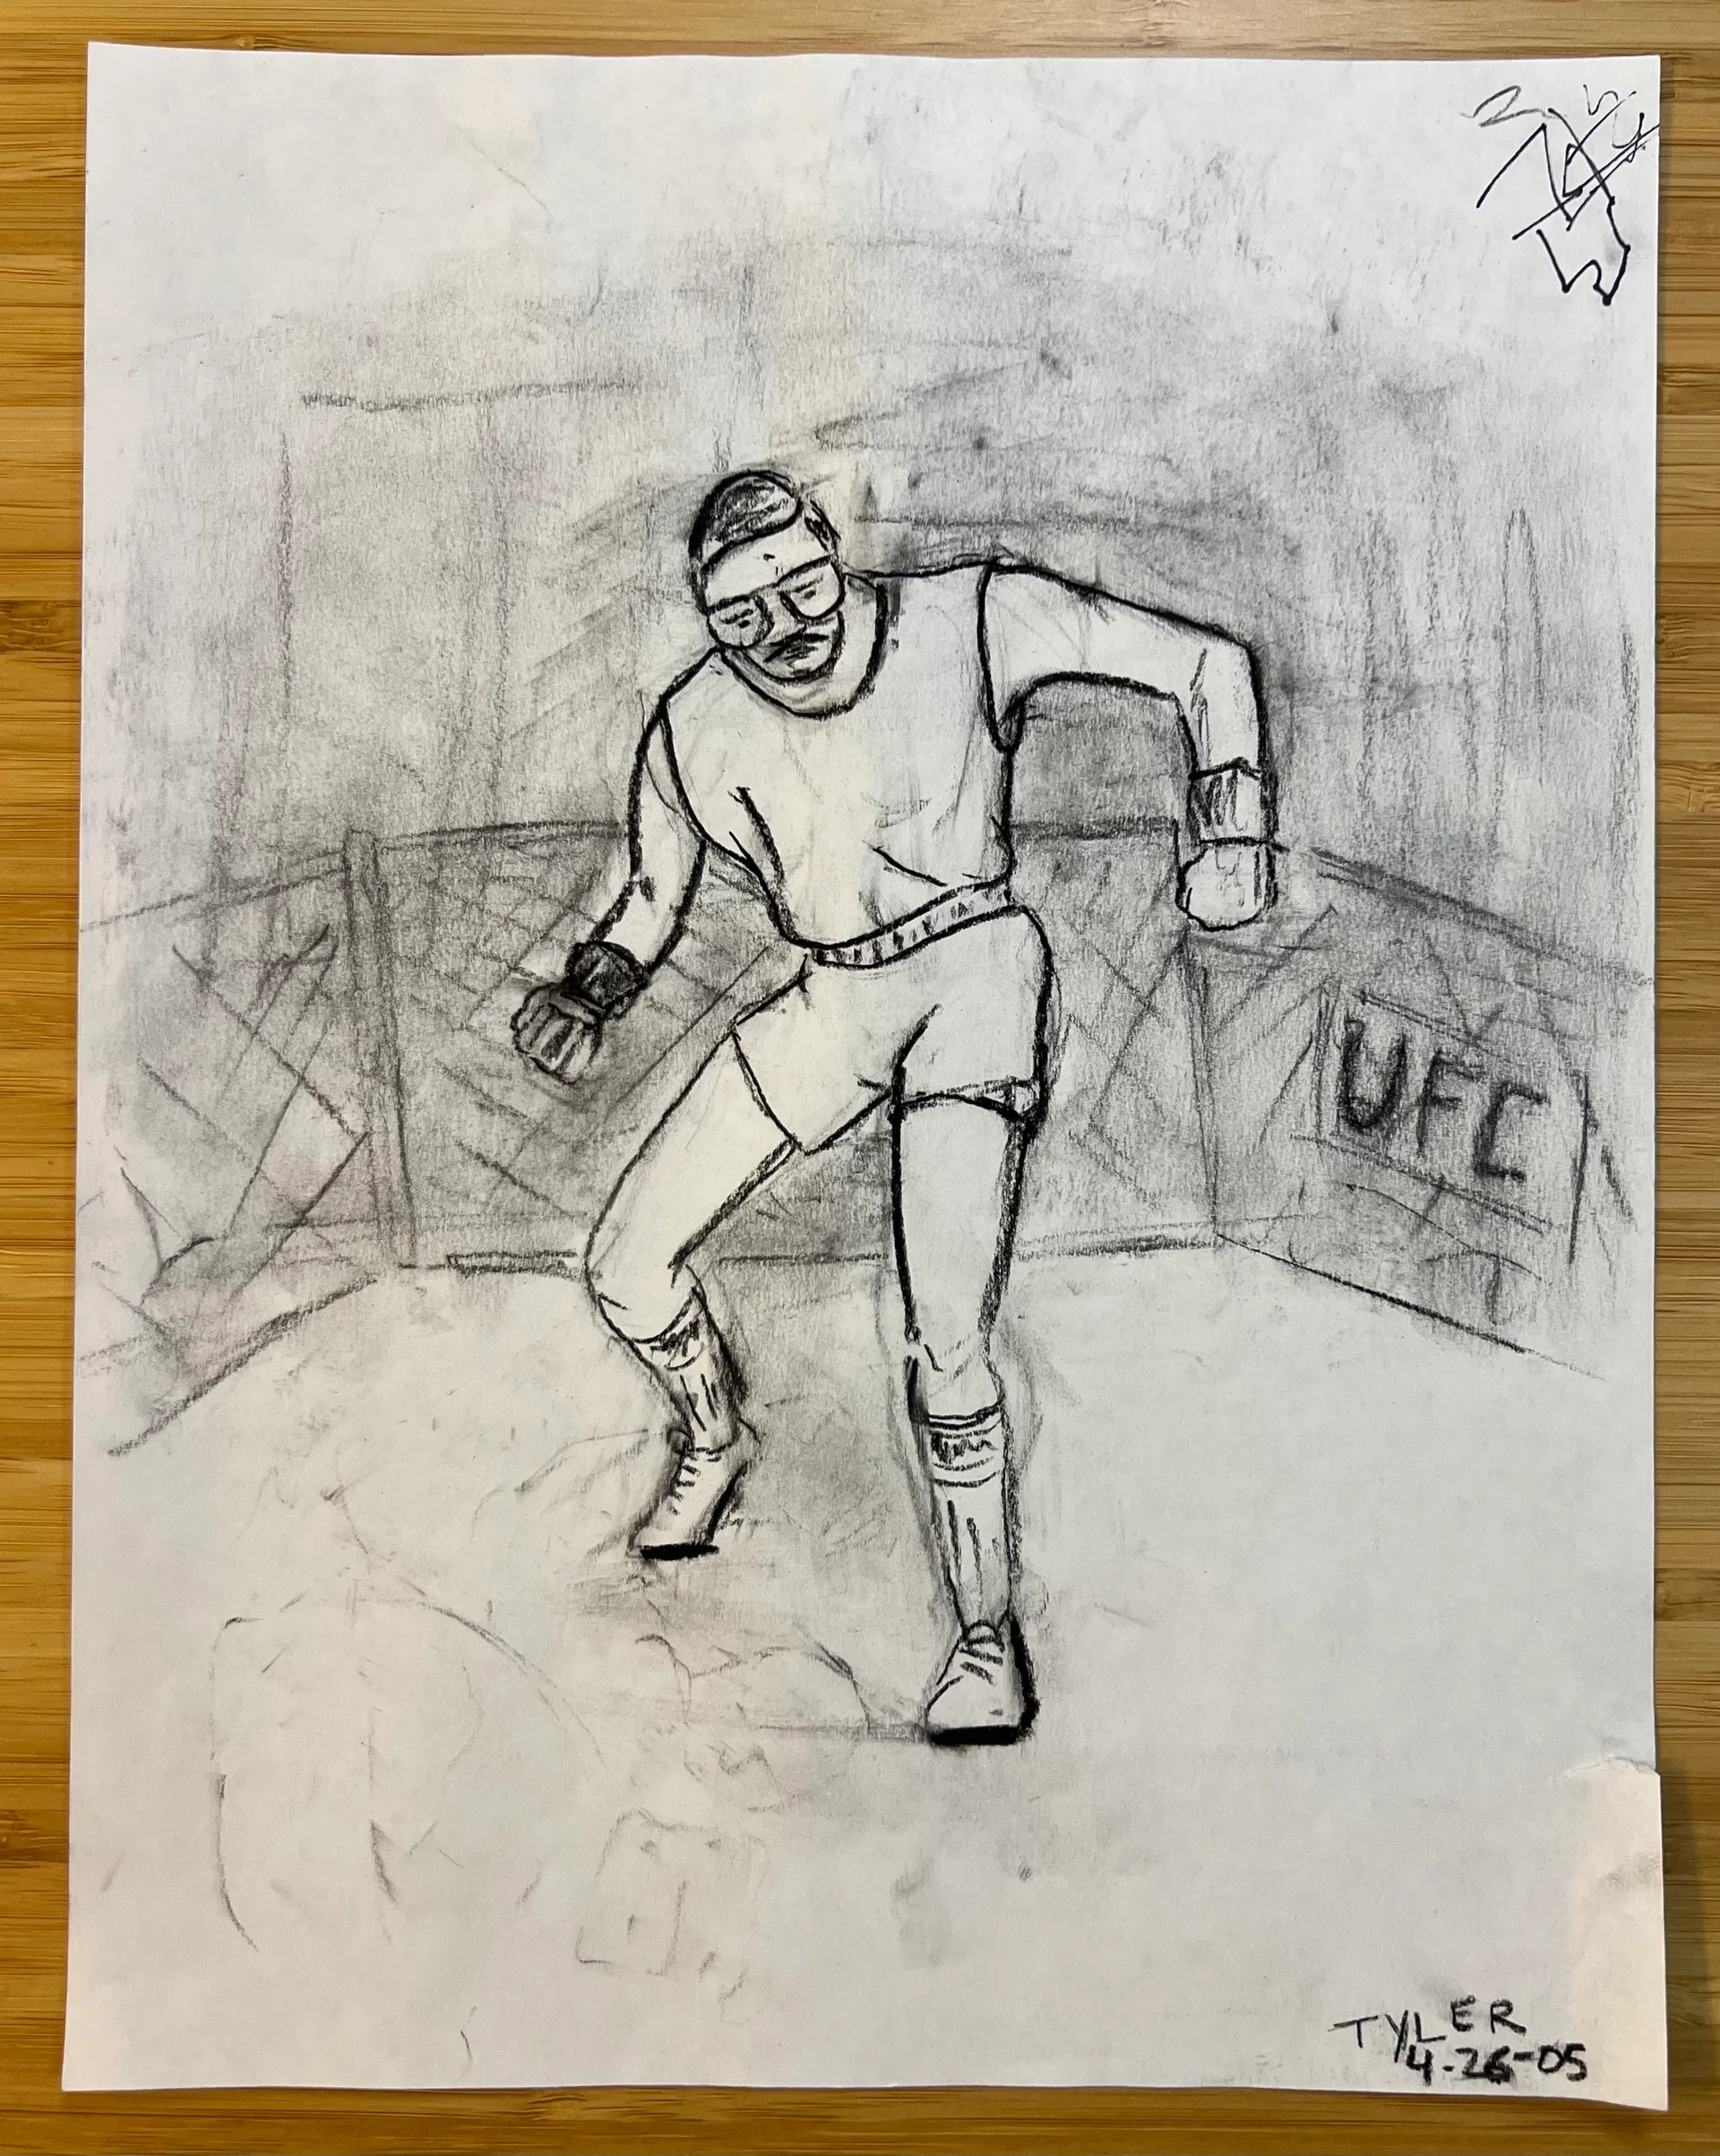 UFC
TYLER
4-26-05